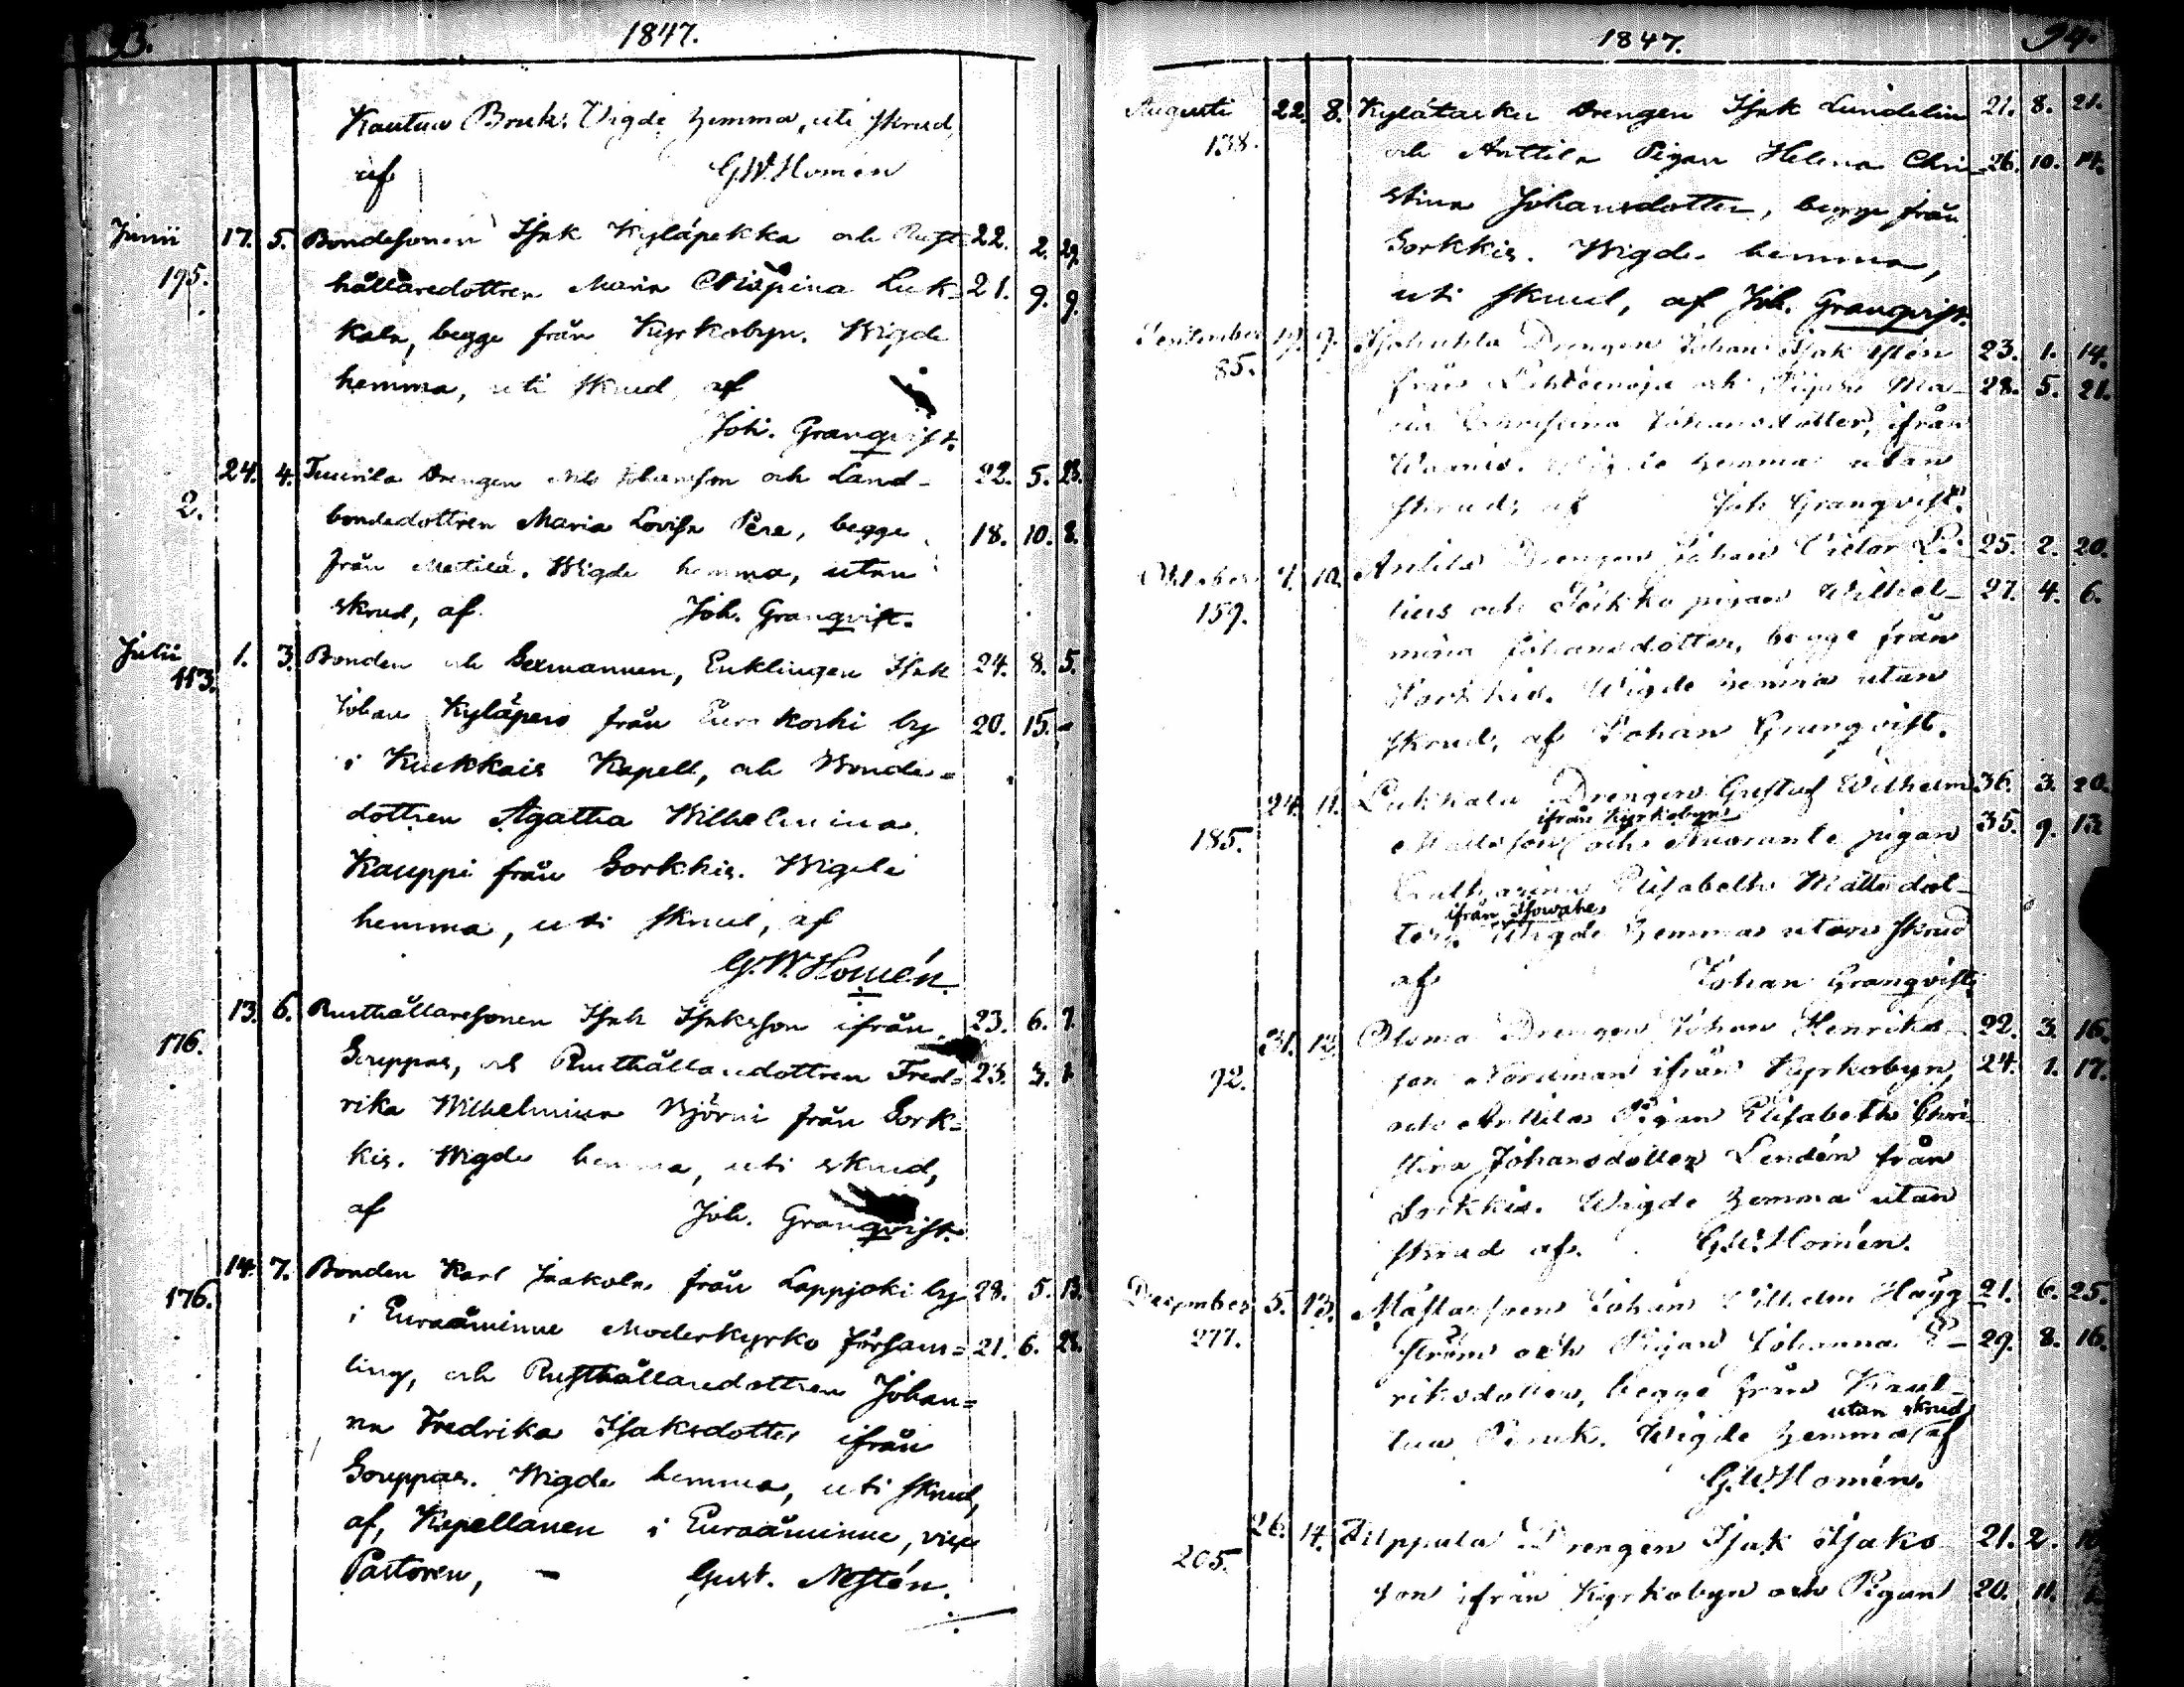 93.
1847.
Kautua Bruk. Vigde hemma, uti skrud,
af G.W. Homén
Junii 17. 5. Bondesonen Isak Kyläpekka och Rust- 22. 2. 29.
195. hållaredottren Maria Chr Luk- 21. 9. 9.
kala, begge från Kyrkobyn. Wigde
hemma, uti skrud, af
Joh. Granqvist.
24. 4. Tuurila Drengen Nils Johansson och Land- 22. 5. 23.
2. bondedottren Maria Lovisa Pere, begge 18. 10. 8.
från Mestilä. Wigde hemma, utan
skrud, af Joh. Granqvist.
Julii 1. 3. Bonden och Sexmannen, Enklingen Isak 24. 8. 5.
113. Johan Kyläpero från Eurakoski by 20. 15. -
i Kiukkais Kapell, och Bonde=
dottren Agatha Wilhelmina
Kauppi från Sorkkis. Wigde
hemma, uti skrud, af
G.W. Homén.
13. 6. Rusthållaresonen Isak Isaksson ifrån 23. 6. 7.
176. Souppas, och Rusthållaredottren Fred= 23. 3. 1.
rika Wilhelmina Björni från Sork=
kis. Wigde hemma, uti skrud,
af Joh. Granqvist.
14. 7. Bonden Karl Jaakola från Lappjoki by 28. 5. 13.
176. i Euraåminne Moderkyrko församl= 21. 6. 28.
ling, och Rusthållaredottren Johan=
na Fredrika Isaksdotter ifrån
Souppas. Wigde hemma, uti skrud,
af, Kapellanen i Euraåminne, vice
Pastoren, - Gust. Nestén.
1847.
94.
Augusti 22. 8. Kylätasku Drengen Isak Lundelin 21. 8. 21.
138. och Anttila Pigan Helena Chri- 26. 10. 14.
stina Johansdotter, begge från
Sorkkis. Wigde hemma,
uti skrud, af Joh. Granqvist.
September 19. 9. Drengen Johan Isak 23. 1. 14.
85. från och Pigan Ma- 28. 5. 21.
ria Christina Johansdotter, ifrån
Wigde hemma utan
skrud, af Joh Granqvist.
Oktober 7. 10. Anttila Drengen Johan Victor 25. 2. 20.
159. lius och Peikko pigan Wilhel- 27. 4. 6.
mina Johansdotter, begge från
Sorkkis. Wigde hemma utan
skrud, af Johan Granqvist.
24. 11. Lukkala Drengen Gustaf Wilhelm 36. 3. 20.
ifrån Kyrkobyn
185. Mattsson och pigan 35. 9. 13.
Catharina Elisabeth Matts dot-
ifrån Isowahe
ter. Wigde hemma utan skrud
af Johan Granqvist.
31. 12. Oloma Drengen Johan Henriks- 22. 3. 16.
92. son Nordman ifrån Kyrkobyn, 24. 1. 17.
och Anttila Pigan Elisabeth Chri-
stina Johansdotter Lindén från
Sorkkis. Wigde hemma utan
skrud af. G.W. Homén.
December 5. 13. Johan Wilhelm Hägg- 21. 6. 25.
277. ström och Pigan Johanna E- 29. 8. 16.
riksdotter, begge från Kaut-
utan skrud
tua Bruk. Wigde hemma af
G.W. Homén.
26. 14. Filppula Drengen Isak Isaks- 21. 2.
205. son ifrån Kyrkobyn och Pigan 20. 11.